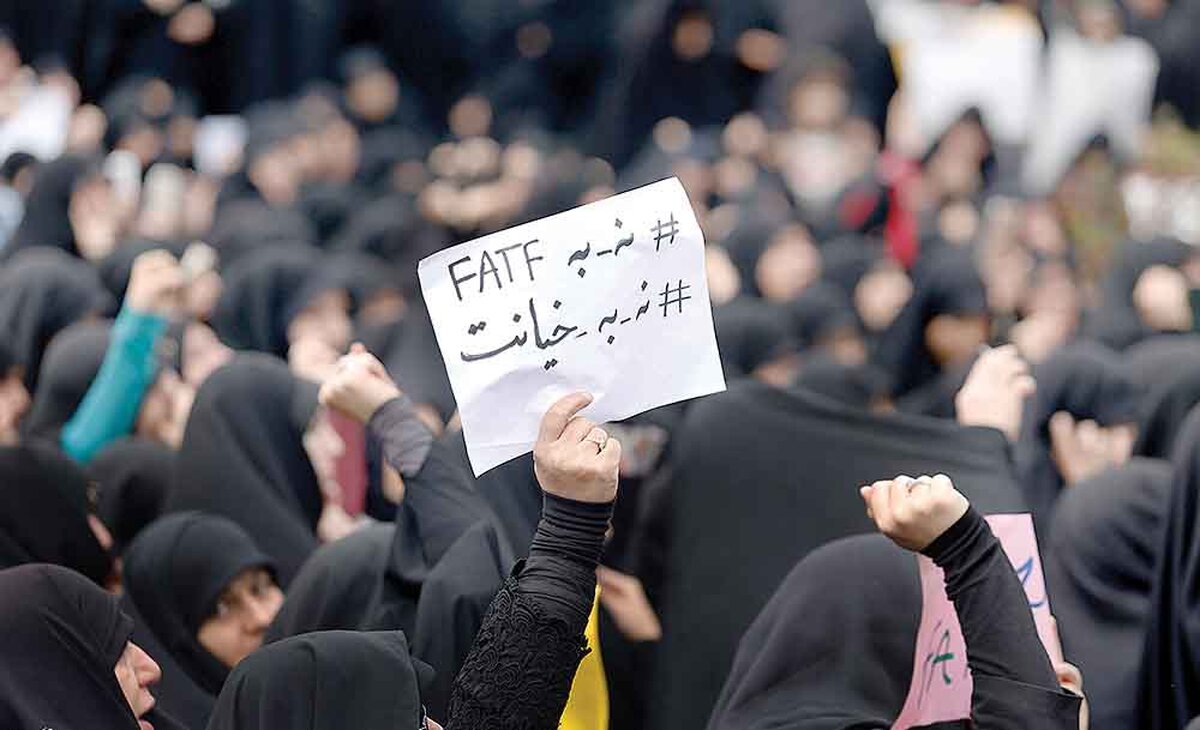 # نه_به FATF
# نه_به_خیانت